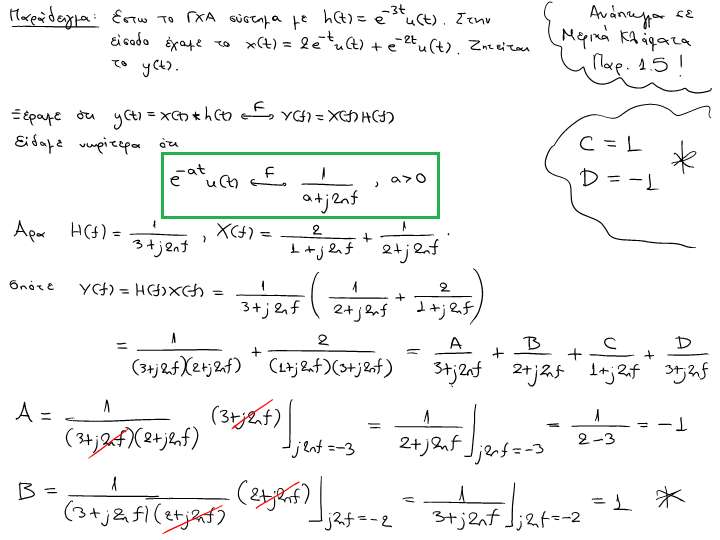 Παράδειγμα: Έστω το ΓΧΑ σύστημα με h(t) = e^{-3t}u(t). Στην
είσοδο έχουμε το x(t) = 2e^{-t}u(t) + e^{-2t}u(t). Ζητείται
το y(t).
Ανάπτυγμα σε
Μερικά Κλάσματα
Παρ. 1.5 !
Ξέρουμε ότι y(t) = x(t) * h(t) ⟷^{F} Y(f) = X(f)H(f)
Είδαμε νωρίτερα ότι
e^{-at}u(t) ⟷^{F} 1/(a+j2πf) , a>0
C = 1
D = -1 *
Άρα H(f) = 1/(3+j2πf) , X(f) = 2/(1+j2πf) + 1/(2+j2πf) .
οπότε Y(f) = H(f)X(f) = 1/(3+j2πf) ( 1/(2+j2πf) + 2/(1+j2πf) )
= 1/((3+j2πf)(2+j2πf)) + 2/((1+j2πf)(3+j2πf)) = A/(3+j2πf) + B/(2+j2πf) + C/(1+j2πf) + D/(3+j2πf)
A = 1/((3+j2πf)(2+j2πf)) (3+j2πf)|_{j2πf=-3} = 1/(2+j2πf)|_{j2πf=-3} = 1/(2-3) = -1
B = 1/((3+j2πf)(2+j2πf)) (2+j2πf)|_{j2πf=-2} = 1/(3+j2πf)|_{j2πf=-2} = 1 *